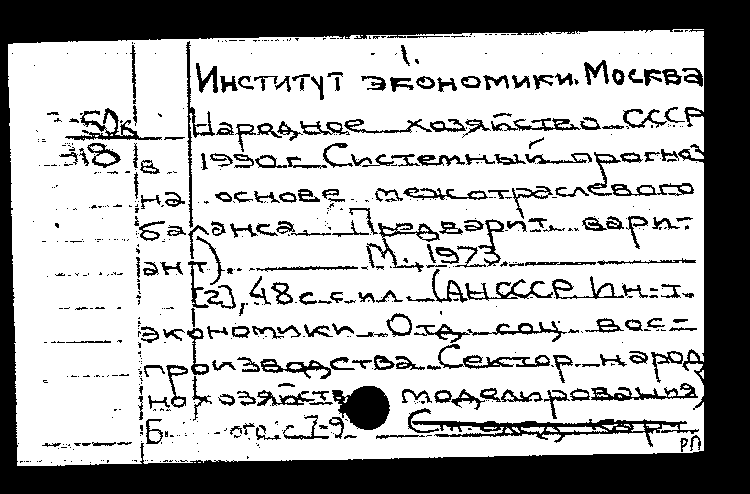 1.
Институт экономики. Москва
50к Народное хозяйство СССР
318 в 1990 г. Системный прогноз
на основе межотраслевого
баланса. (Предварит. вари-
ант). М., 1973.
[2], 48 с. с ил. (АН СССР Ин-т.
экономики. Отд. соц. вос-
производства Сектор народ
нохозяйств моделирования)
Б. огр. с 7-9 См. след. карт.
РП